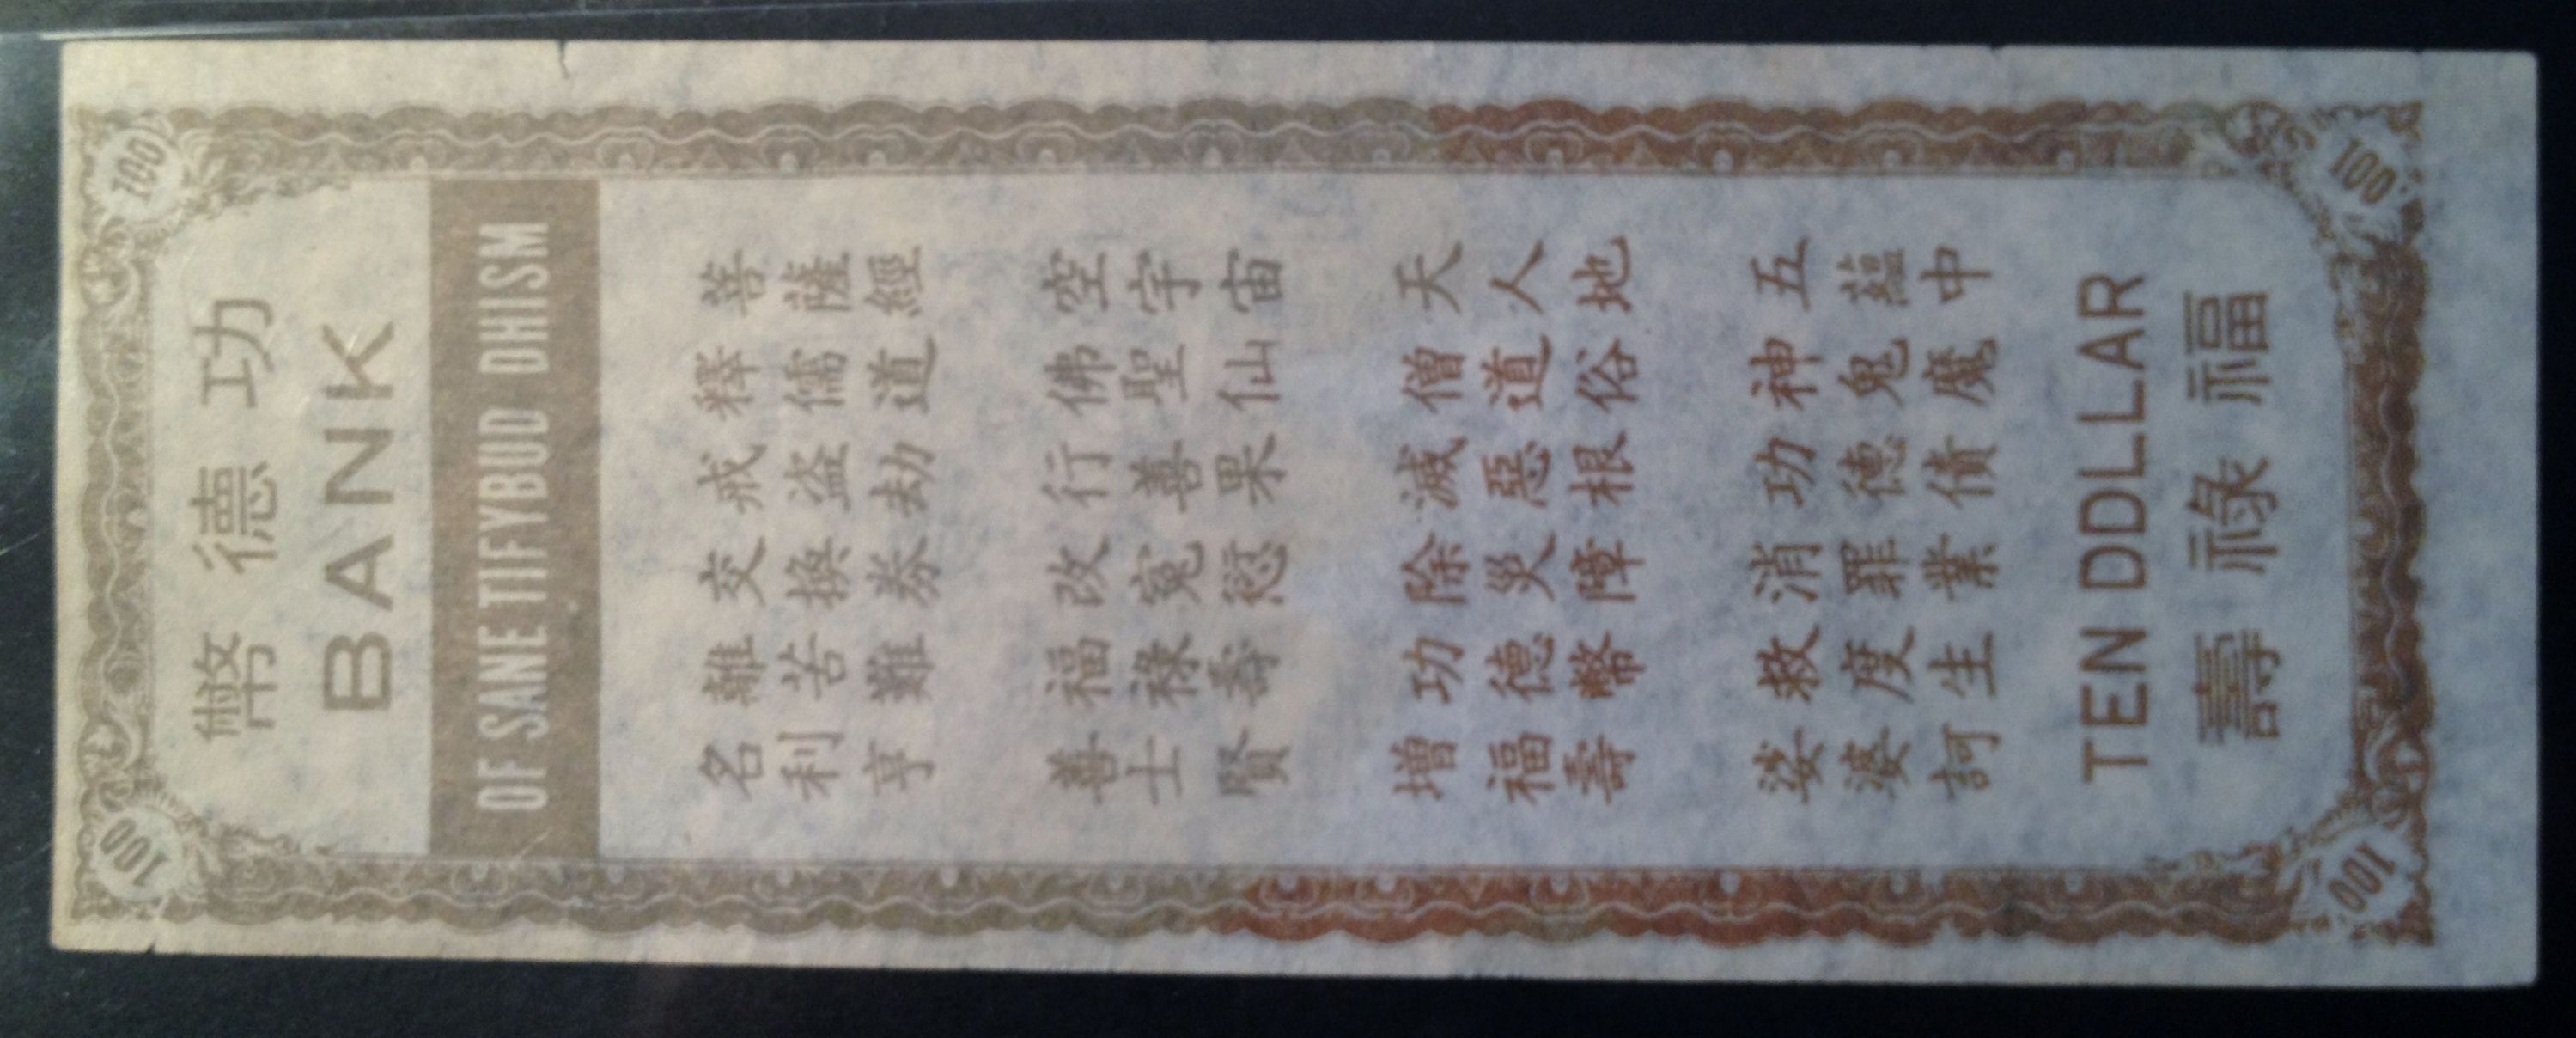 100
100
功德幣
BANK
OF SANE TIFYBUD DHISM
菩薩經 空宇宙 天人地 五蘊中
釋儒道 佛聖仙 僧道俗 神鬼魔
戒盜劫 行善果 滅惡根 功德債
交換券 改寃愆 除災障 消罪業
離苦難 福祿壽 功德幣 救度生
名利亨 善士賢 增福壽 娑婆訶
TEN DDLLAR
福祿壽
100
100